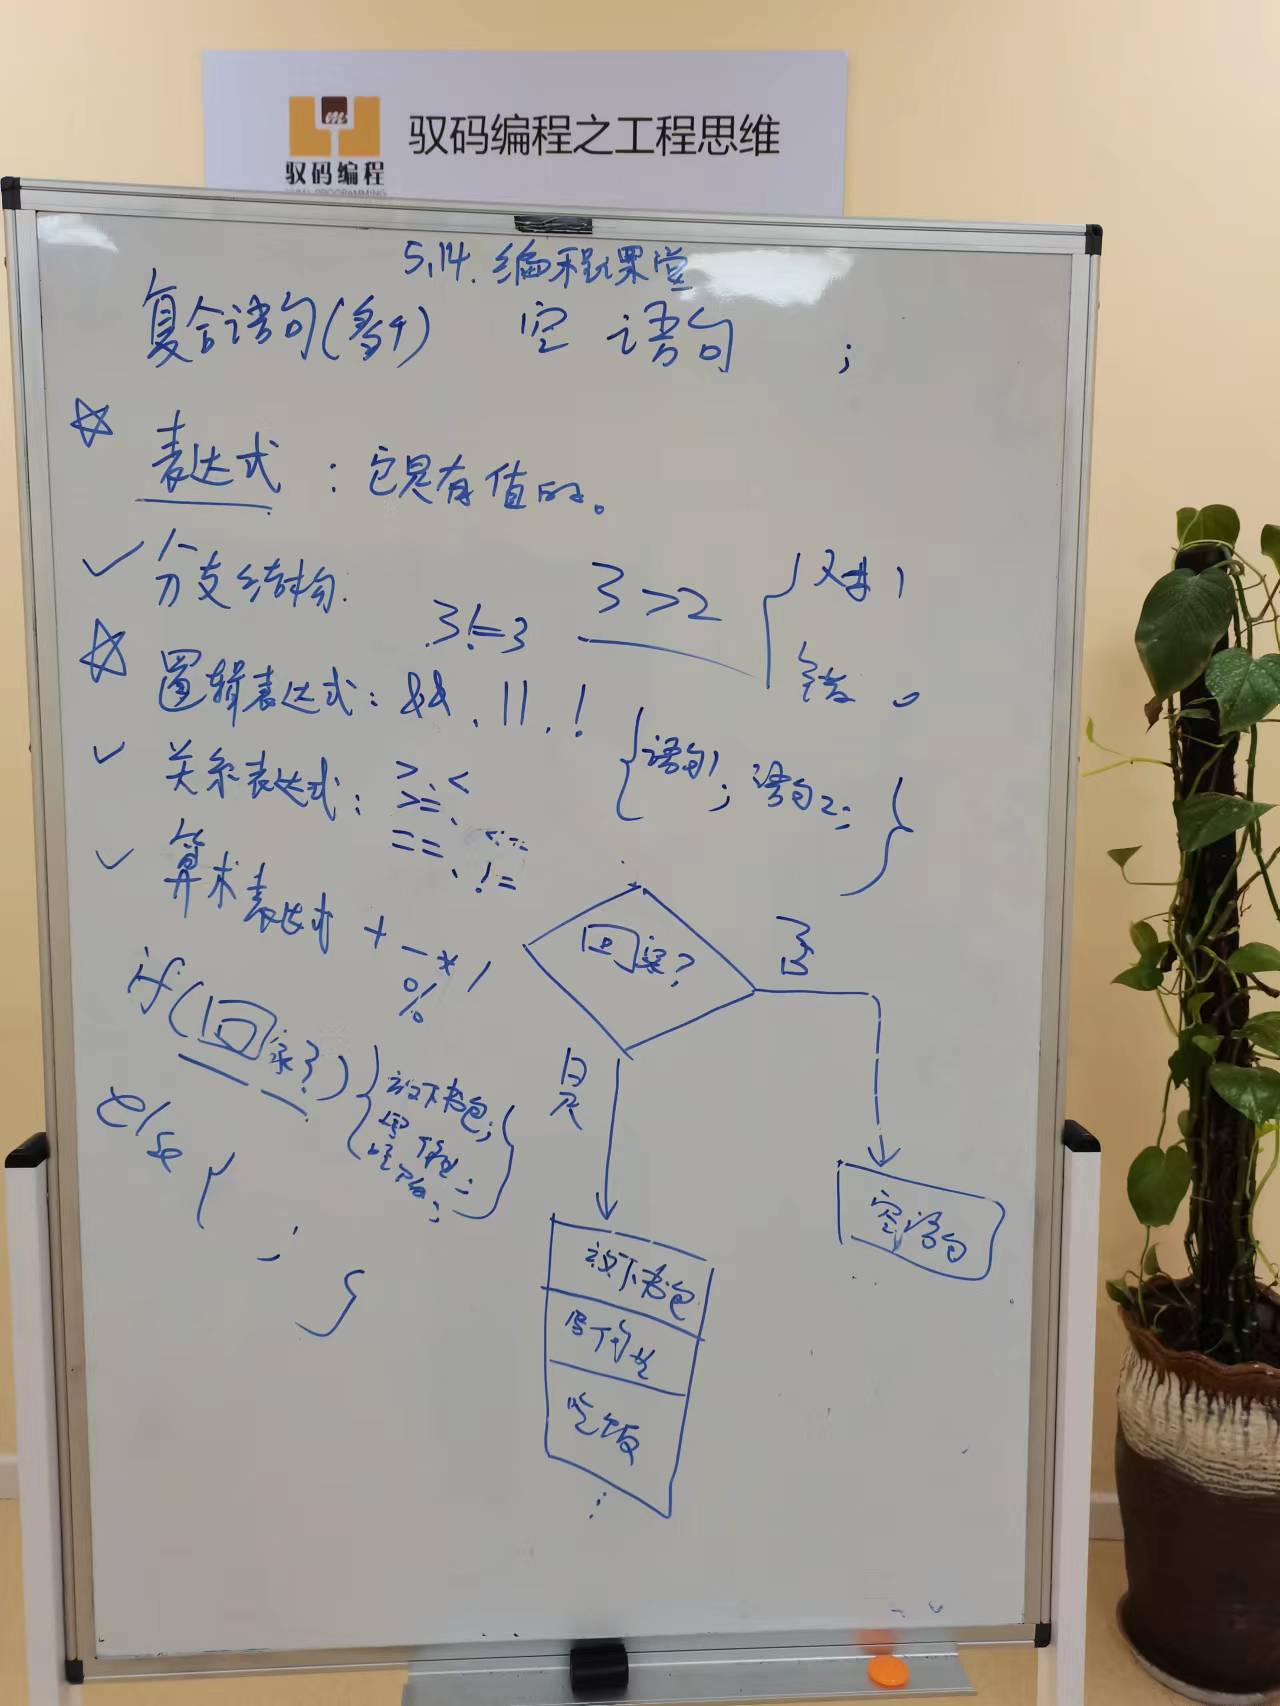 驭码编程之工程思维
驭码编程
5.14. 编程课堂
复合语句(多个) 空 语句 ;
表达式 : 它是有值的。
分支结构.
3!=3 3>2 { 对 1
错 0
逻辑表达式: &&、||、!
{语句1; 语句2; }
关系表达式: >、<
>=、<=
==、!=
算术表达式 + - * /
%
回家?
否
if(回家?){放下书包;
写作业;
吃饭; }
else{ ; }
是
空语句
放下书包
写作业
吃饭
⋮